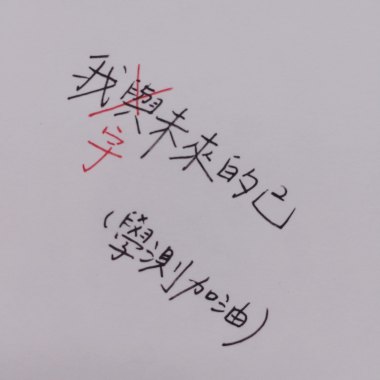 我與未來的己²
字
(學測加油)